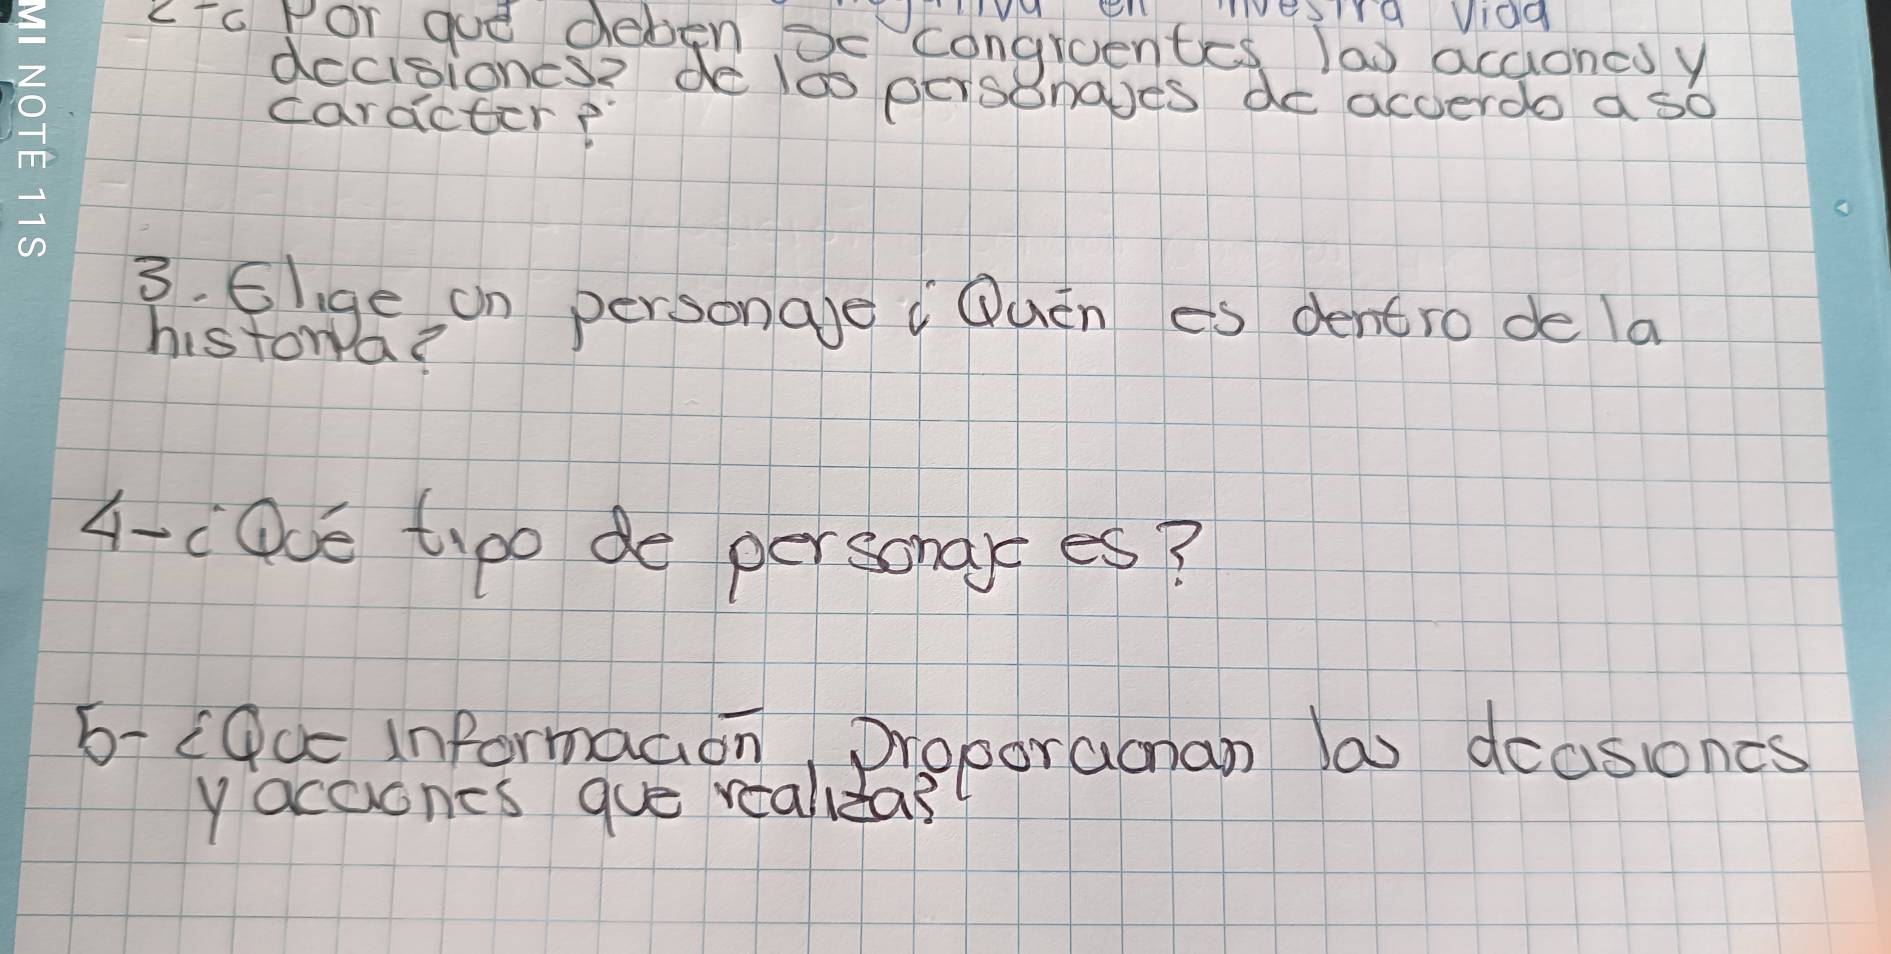 2-¿Por qué deben se congruentes las acciones y
decisiones? de los personajes de acuerdo a su
carácter?
3. Elige un personaje ¿Quién es dentro de la
historia?
4-¿Qué tipo de personaje es?
5-¿Que información proporcionan las decisiones
y acciones que realiza?
MI NOTE 11S